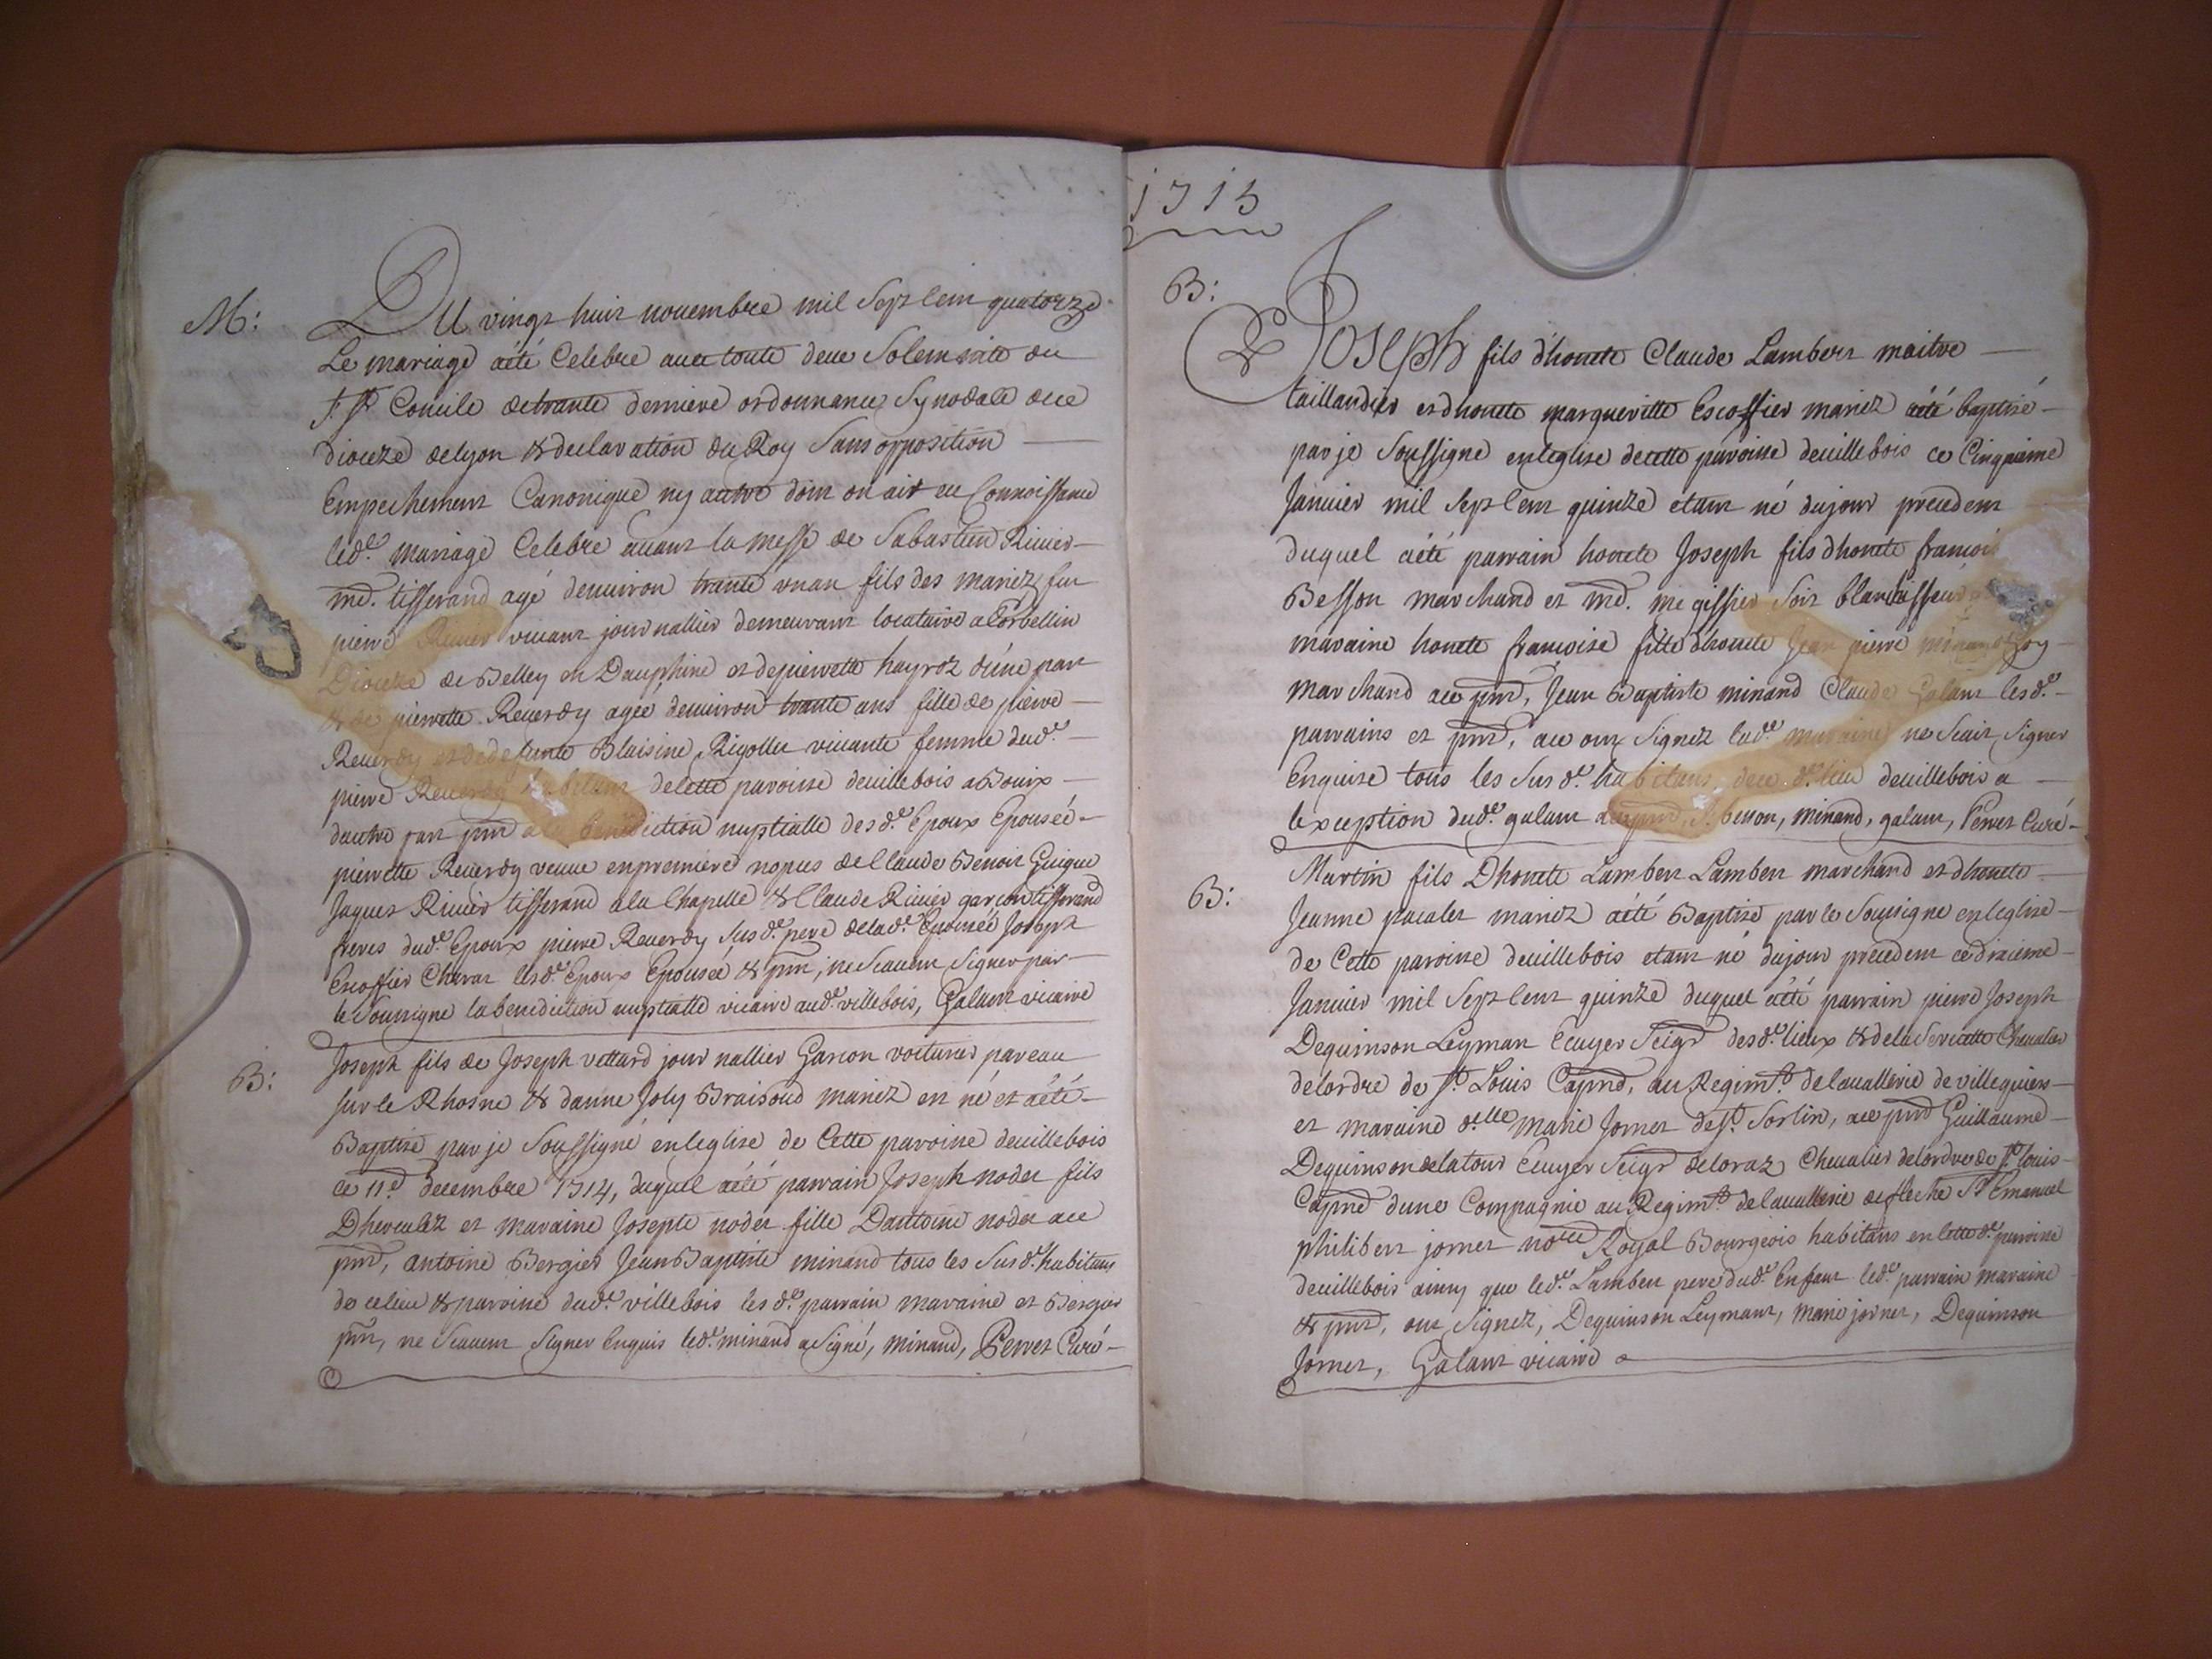 M:
Du vingt huit nouembre mil Sept Cent quatorze
Le mariage aété Celebré auec toute deue Solemnité du
St Concile detrante derniere ordonnance Synodale dece
dioceze delyon & declaration du Roy Sans opposition
Empechement Canonique ny autre dont on ait eu Connoissance
led.e mariage Celebré auant la messe de Sabastien Riuier
md. tisserand agé denuiron trante un an fils des mariez feu
pierre Riuier viuant journallier demeurant locataire a Corbellin
Dioceze de Belley en Dauphiné et depierrette hayroz dúne part
& de pierrette Reuerdy agée denuiron trante ans fille de pierre
Reuerdy et de defunte Blaisine Rigollet viuante femme dud.e
pierre Reuerdy habitant decette paroisse deuillebois a Bouix
dautre part pnt a la benediction nuptialle desd.e Epoux Epouseé
pierrette Reuerdy veuue enpremiere nopces deClaude Benoit Guigue
Jaques Riuier tisserand ala Chapelle & Claude Riuier garcon tisserand
freres dud.e Epoux pierre Reuerdy Susd.e pere delad.e Epouseé Joseph
Escoffier Charat lesd.e Epoux Epouseé & pnt, ne Scauent Signer par
le Soussigné la benediction nuptialle vicaire aud.e villebois, Galant vicaire
B:
Joseph fils de Joseph vettard journallier Garcon voiturier pareau
Sur le Rhosne & danne Joly Braisoud mariez est né et aété
Baptizé par je Soussigné enleglise de Cette paroisse deuillebois
ce 11.e decembre 1714, duquel aété parrain Joseph nodet fils
Dherculez et maraine Josepte nodet fille Dantoine nodet auec
pnt, antoine Bergier Jean Baptiste minand tous les Susd.e habitans
de celieu & paroisse dud.e villebois lesd.e parrain maraine et Bergier
pnt, ne Scauent Signer Enquis led.e minand aSigné, minand, Perret Curé
1715
B:
Joseph fils dhonete Claude Lambert maitre
taillandier et dhonete marguerite Escoffier mariez aété baptisé
par je Soussigné enleglise decette paroisse deuillebois ce Cinquieme
Januier mil Sept Cent quinze etant né dujour precedent
duquel aété parrain honete Joseph fils dhonete francois
Besson marchand et md. megissier Soit blanchisseur
maraine honete francoise fille dhonete Jean pierre
marchand auec pnt, Jean Baptiste minand Claude Galant lesd.e
parrains et pnt, auec ont Signez lad.e maraine ne Scait Signer
Enquise tous les Susd.e habitans decu d.e lieu deuillebois a
lexception dud.e galant besson, minand, galant, Perret Curé
B:
Martin fils Dhonete Lambert Lambert marchand et dhonete
Jeanne pacalet mariez aété Baptisé par le Soussigné enleglise
de Cette paroisse deuillebois etant né dujour precedent cedixieme
Januier mil Sept Cent quinze duquel aété parrain pierre Joseph
Dequinson Leyman Ecuyer Seigr desd.e lieux & dela Seruette Cheualier
delordre de St Louis Capne, au Regimt decauallerie de villequiers
et maraine delle marie Jornet de St Sorlin, auec pnt Guillaume
Dequinson delatour Ecuyer Seigr deloraz Cheualier delordre de St louis
Capne dune Compagnie au Regimt decauallerie de fleche Sr Emanuel
philibert jornet notre Royal Bourgeois habitans en Cette d.e paroisse
deuillebois ainsy que led.e Lambert pere dud.e Enfant led.e parrain maraine
& pnt, ont Signez, Dequinson Leymant, marie jornet, Dequinson
Jornet, Galant vicaire